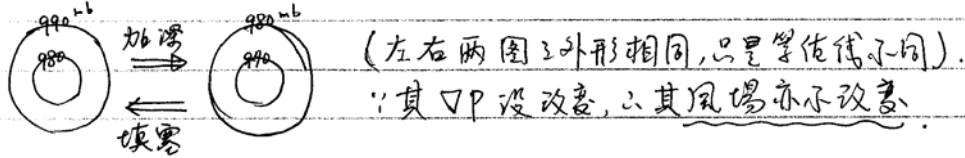 990 mb
980
加深
980 mb
970
(左右兩图之外形相同,只是等值线不同).
∵其▽P没改变,∴其风場亦不改变.
填塞